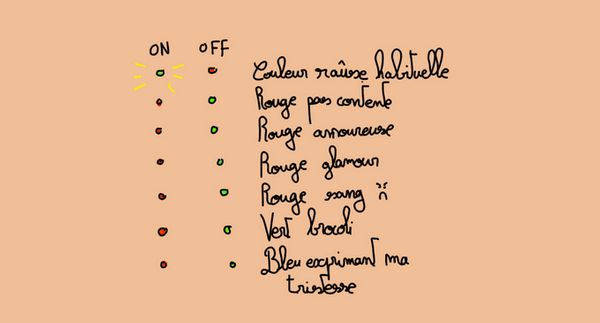 ON OFF
Couleur raûse habituelle
Rouge pas contente
Rouge amoureuse
Rouge glamour
Rouge sang
Vert brocoli
Bleu exprimant ma
tristesse